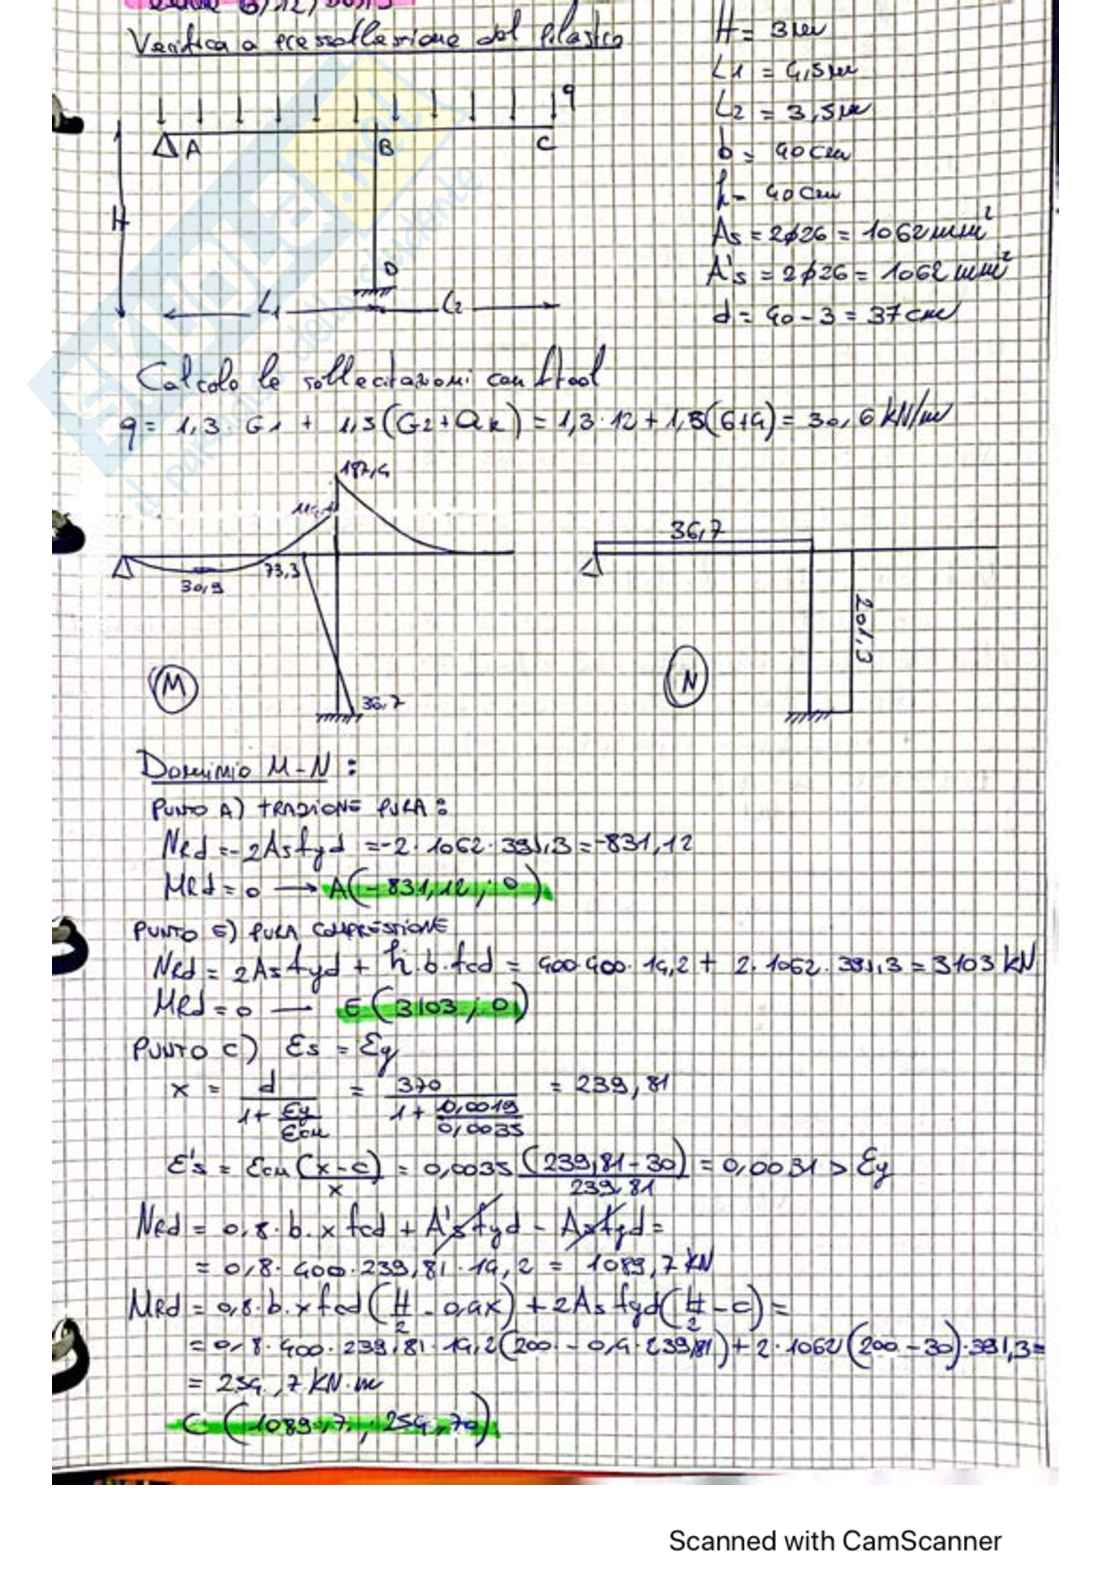 Verifica a pressoflessione del pilastro
H = 3m
L1 = 4,5m
L2 = 3,5m
b = 40cm
h = 40cm
As = 2ø26 = 1062mm²
A's = 2ø26 = 1062mm²
d = 40-3 = 37cm
q
A
B
C
D
H
L1
L2
Calcolo le sollecitazioni con ftool
q = 1,3 · G1 + 1,5(G2+Qk) = 1,3·12+1,5(6+4) = 30,6 kN/m
187,4
73,3
30,9
36,7
M
36,7
201,3
N
Dominio M-N :
PUNTO A) TRAZIONE PURA :
NRd = -2Asfyd = -2·1062·391,3 = -831,12
MRd = 0 → A(-831,12 ; 0)
PUNTO E) PURA COMPRESSIONE
NRd = 2Asfyd + h·b·fcd = 400·400·14,2 + 2·1062·391,3 = 3103 kN
MRd = 0 — E(3103 ; 0)
PUNTO C) Ɛs = Ɛy
x = d / (1 + Ɛy/Ɛcu) = 370 / (1 + 0,0019/0,0035) = 239,81
Ɛ's = Ɛcu (x-c)/x = 0,0035 (239,81-30)/239,81 = 0,0031 > Ɛy
NRd = 0,8·b·x fcd + A'sfyd - Asfyd =
= 0,8·400·239,81·14,2 = 1089,7 kN
MRd = 0,8·b·x fcd (H/2 - 0,4x) + 2As fyd (H/2 - c) =
= 0,8·400·239,81·14,2(200 - 0,4·239,81) + 2·1062(200-30)·391,3=
= 254,7 kN·m
C (1089,7 ; 254,70)
Scanned with CamScanner